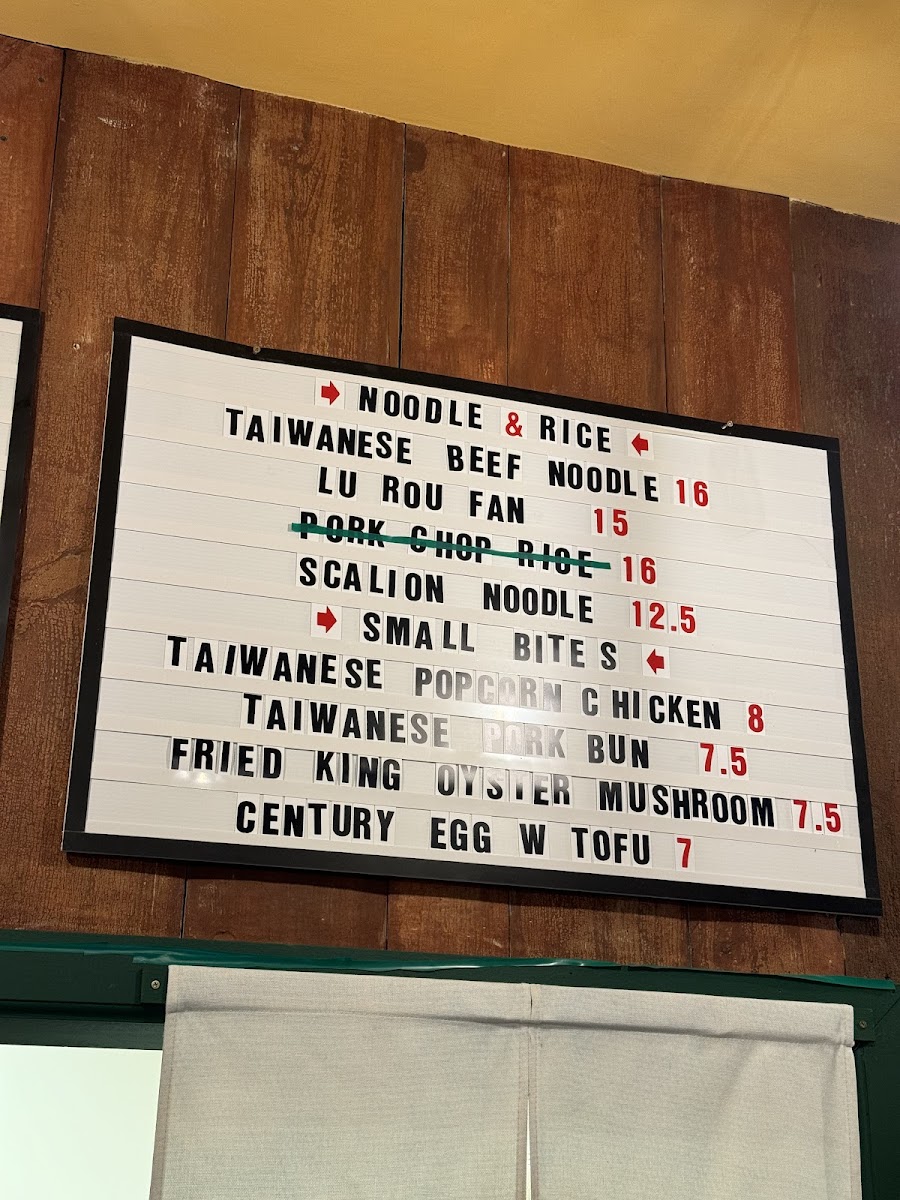 ➡ NOODLE & RICE ⬅
TAIWANESE BEEF NOODLE 16
LU ROU FAN 15
PORK CHOP RICE 16
SCALION NOODLE 12.5
➡ SMALL BITES ⬅
TAIWANESE POPCORN CHICKEN 8
TAIWANESE PORK BUN 7.5
FRIED KING OYSTER MUSHROOM 7.5
CENTURY EGG W TOFU 7